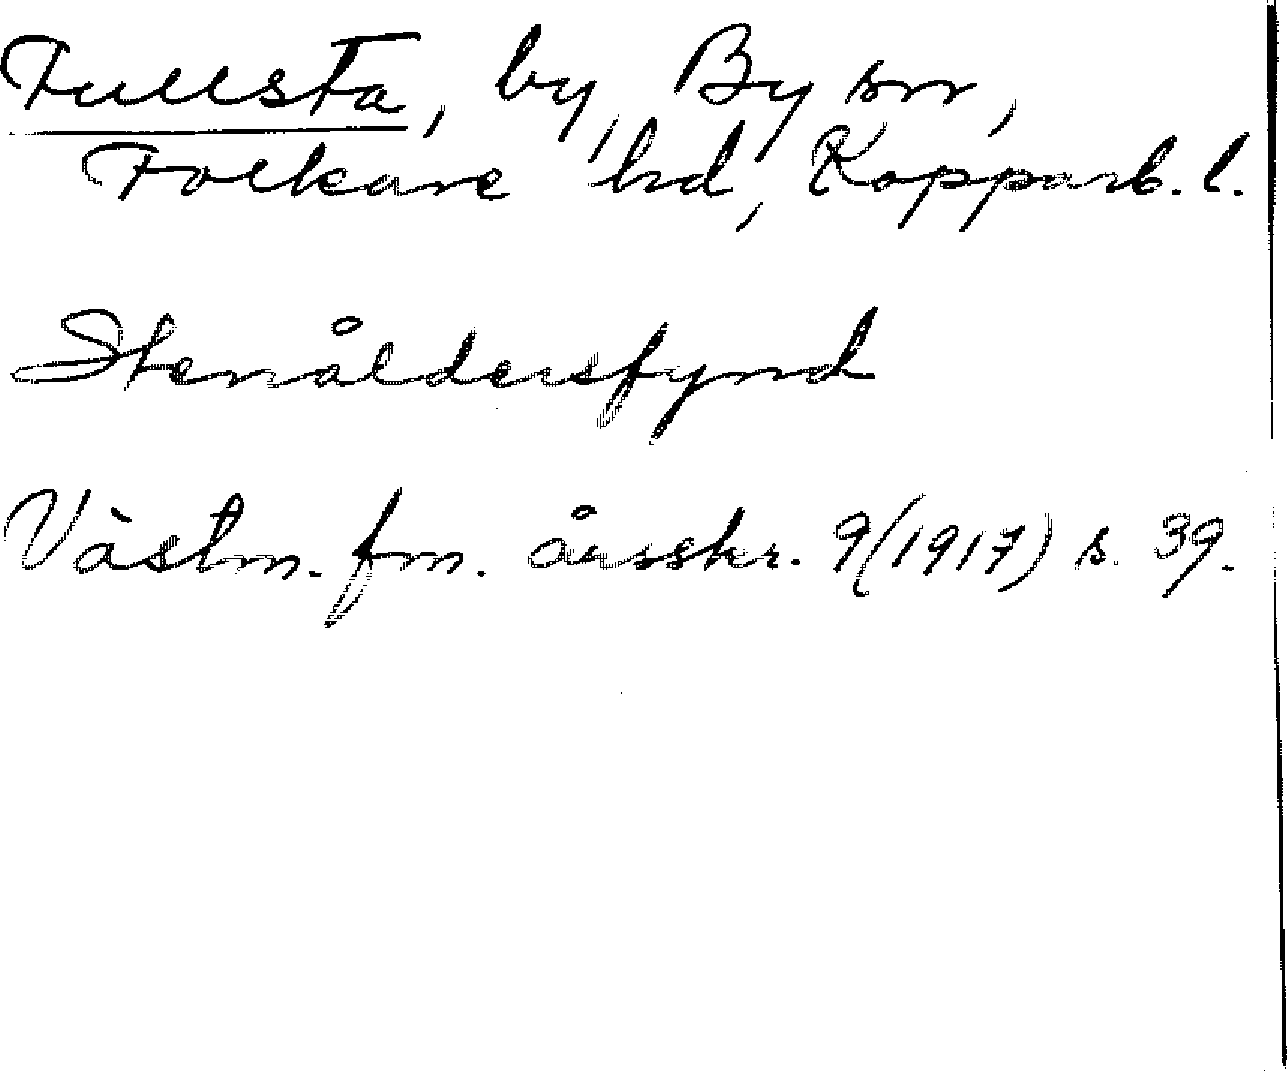 Fullsta, by, By sn,
Folkare hd, Kopparb. l.
Stenåldersfynd
Västm. fm. årsskr. 9(1917) s. 39.